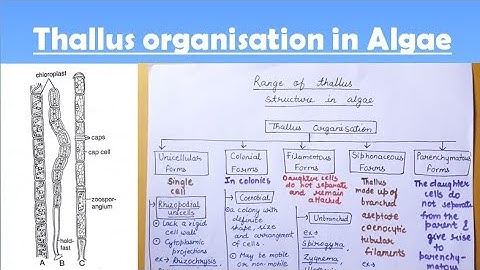 Thallus organisation in Algae
chloroplast
caps
cap cell
zoospor-
angium
hold-
fast
A B C
Range of thallus
structure in algae
Thallus Organisation
Unicellular
Forms
Single
cell
Rhizopodial
unicells
Lack a rigid
cell wall
Cytoplasmic
projections
ex→ Rhizochrysis
Colonial
Forms
In colonies
Coenobial
a colony with
definite
shape, size
and arrangement
of cells.
May be motile
or non-motile
Filamentous
Forms
Daughter cells
do not separate
and remain
attached
Unbranched
ex→
Spirogyra
Zygnema,
Siphonaceous
Forms
Thallus
made up of
branched
aseptate
coenocytic
tubular
filaments
Parenchymatous
Forms
The daughter
cells do
not separate
from the parent
& give
rise to
parenchy-